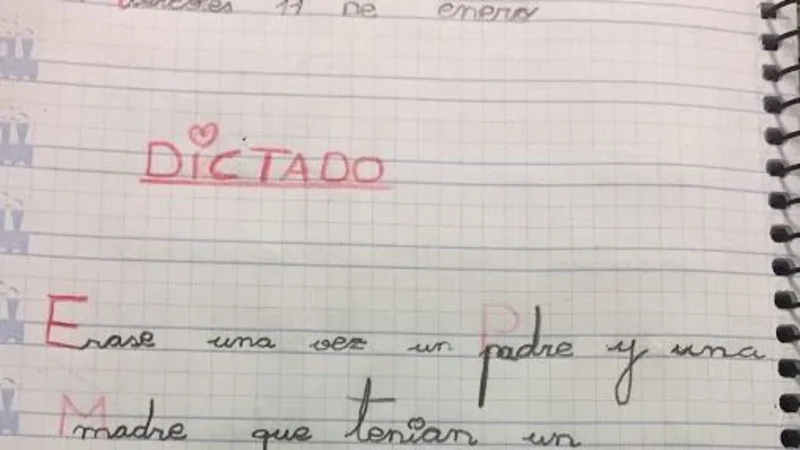 11 DE enero
DiCTADO
Erase una vez un padre y una
madre que tenian un